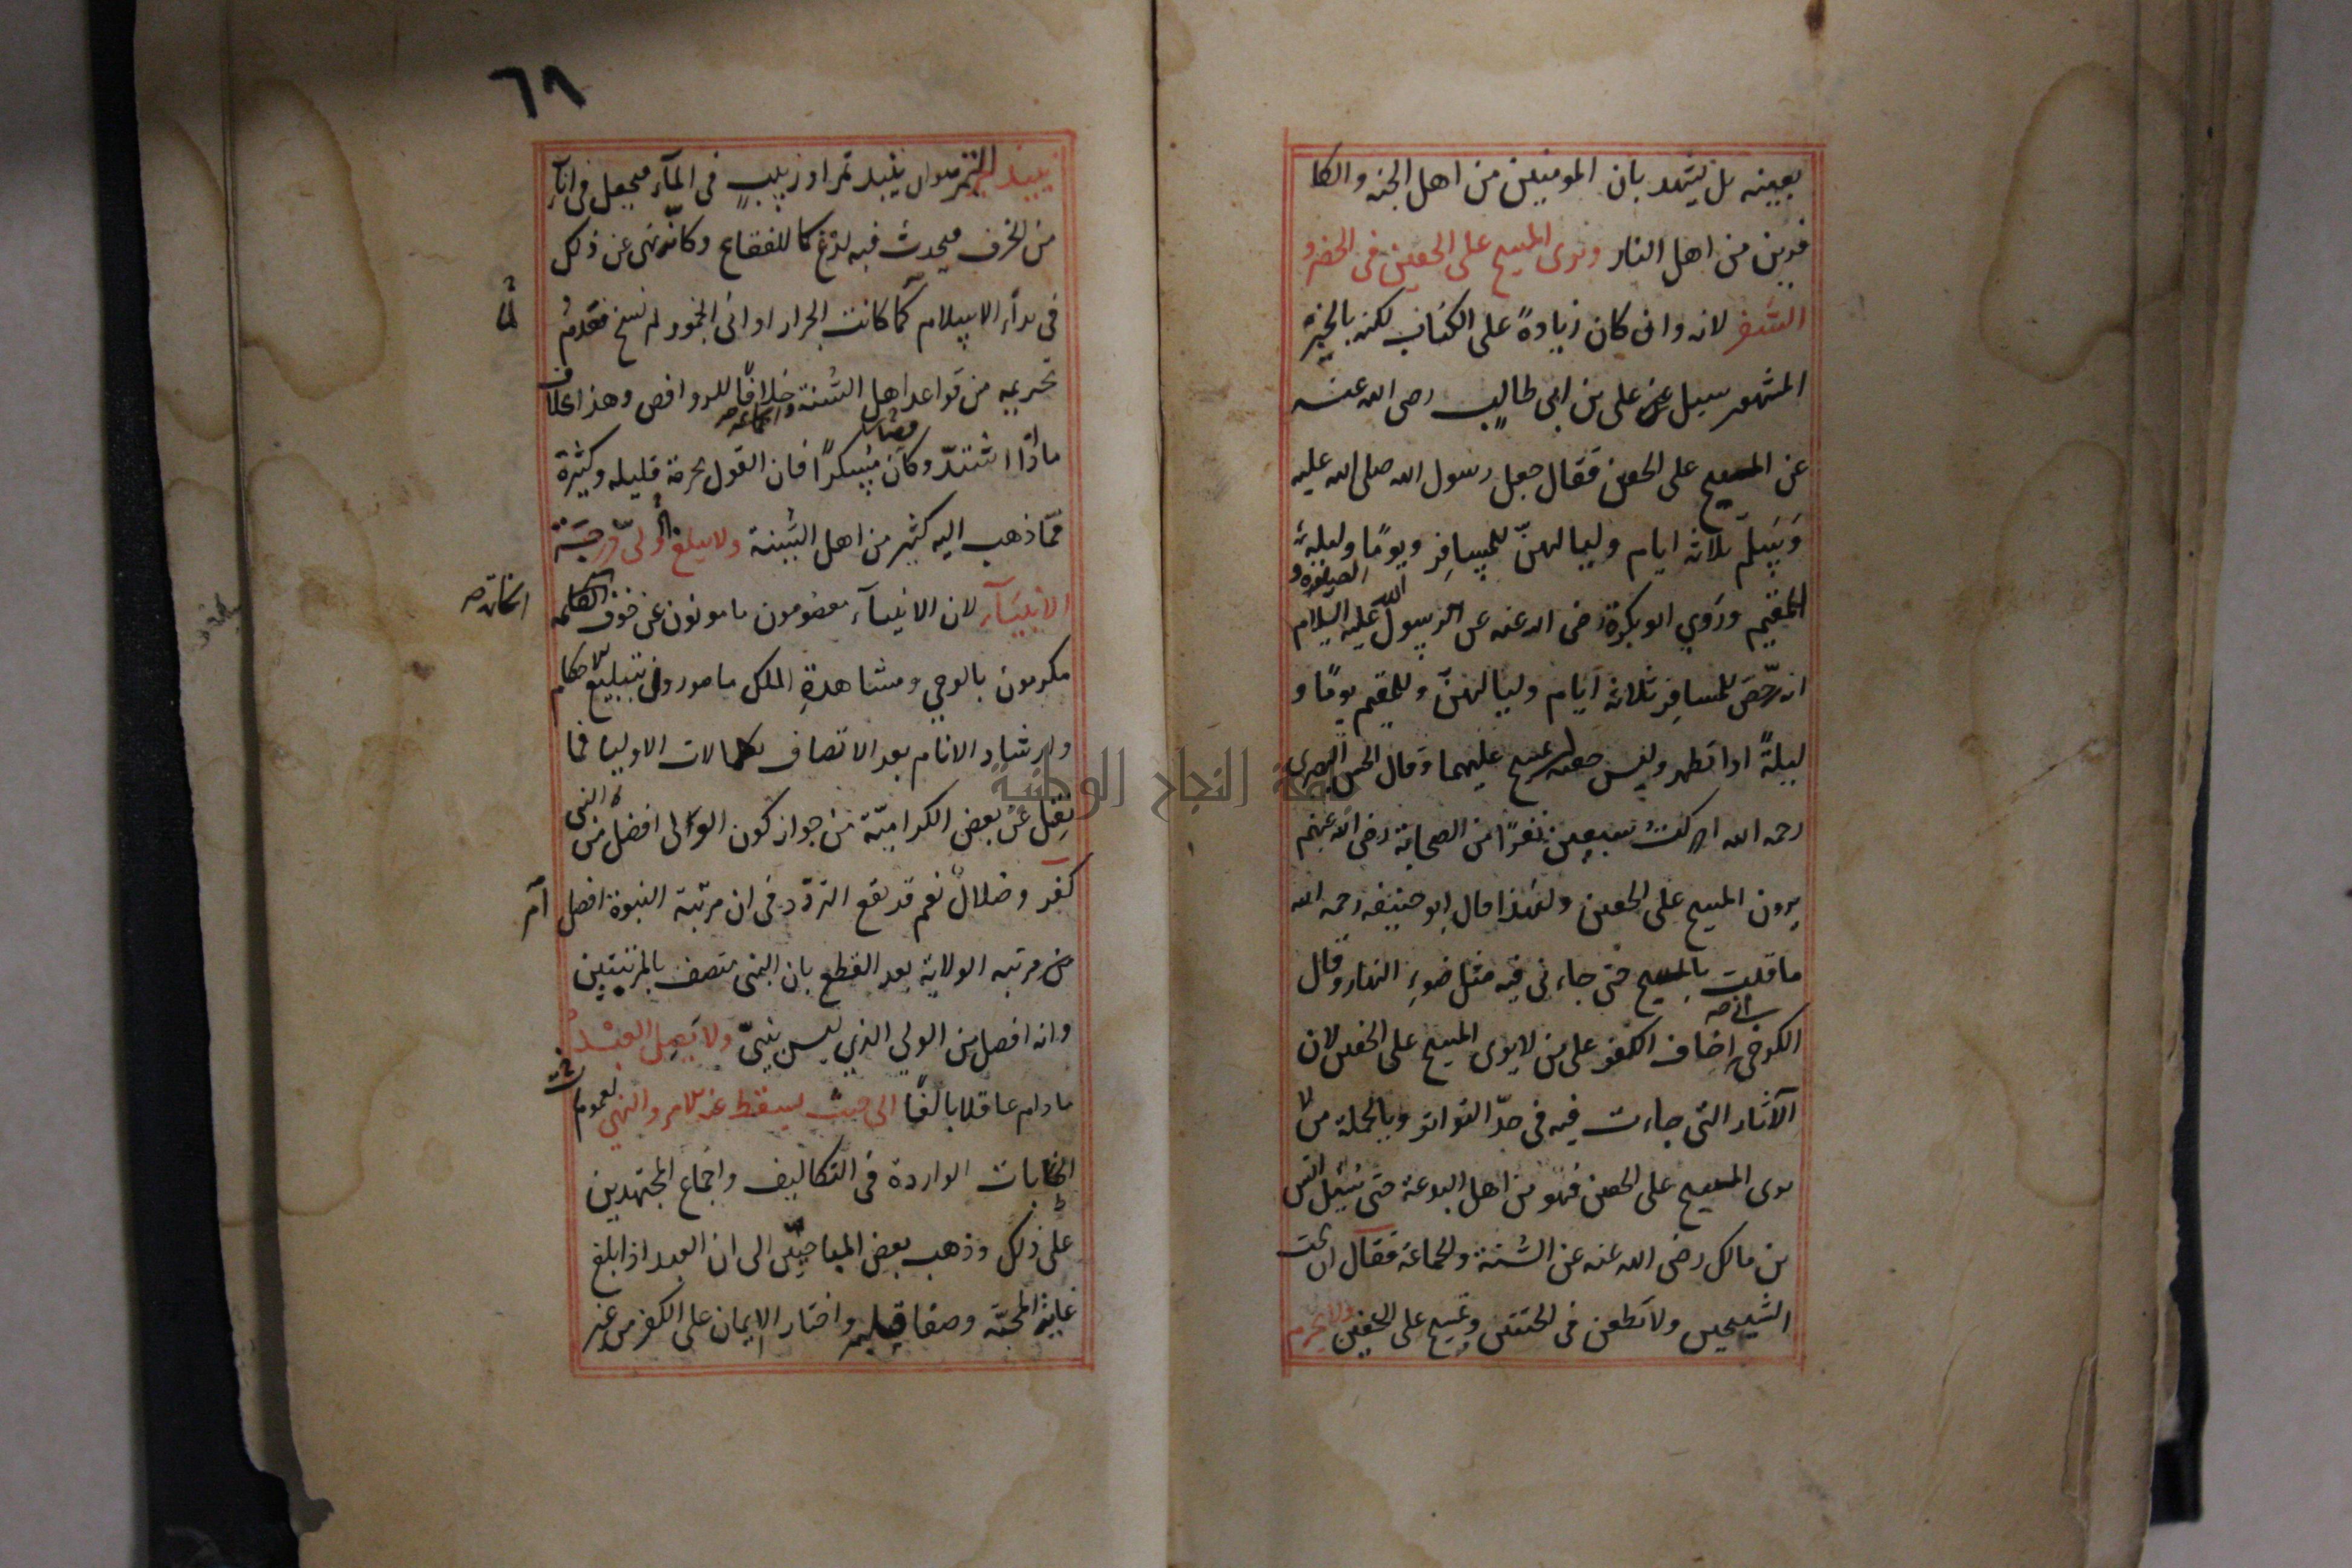 بعينه بل يشهد بان المومنين من اهل الجنه والكا
فرين من اهل النار ونرى المسح على الخفين فى الحضر و
السفر لانه وان كان زيادةً على الكتاب لكنه بالخبر
المشهور سيل عن على بن ابى طالب رضى الله عنه
عن المسح على الخفين فقال جعل رسول الله صلى الله عليه
وسلم ثلاثه ايام ولياليهنّ للمسافر ويومًا وليلةً
للمقيم وروى ابو بكرة رضى الله عنه عن الرسول عليه الصلوة و السلام
انه رخّص للمسافر ثلاثة ايام ولياليهنّ وللمقيم يومًا و
ليلةً اذا تطهر ولبس خفيه ان يمسح عليهما وقال الحسن البصرى
رحمه الله ادركت سبعين نفرًا من الصحابة رضى الله عنهم
يرون المسح على الخفين ولهذا قال ابو حنيفه رحمه الله
ما قلت بالمسح حتى جاءنى فيه مثل ضوء النهار وقال
الكرخى انى اخاف الكفر على من لا يرى المسح على الخفين لان
الآثار التى جاءت فيه فى حدّ التواتر وبالجملة من لا
يرى المسح على الخفين فهو من اهل البدعة حتى سئل انس
بن مالك رضى الله عنه عن السنة والجماعة فقال ان تحب
الشيخين ولا تطعن فى الختنين وتمسح على الخفين ولا نحرم
٦٨
نبيذ التمر هو ان ينبذ تمر او زبيب فى الماء فيجعل فى اناء
من الخزف فيحدث فيه لذع كما للفقاع وكانّه نهى عن ذلك
فى بدأ الاسلام لما كانت الجرار اوانى الخمور ثم نسخ فعدم
تحريمه من قواعد اهل السنة والجماعة خلافًا للروافض وهذا بخلاف
ما اذا اشتدّ وكان فصار مسكرًا فان القول بحرمة قليله وكثيرة
ممّا ذهب اليه كثير من اهل السنة ولا يبلغ ولىّ درجة
الانبياء لان الانبياء معصومون مامونون عن خوف الخاتمه
مكرمون بالوحى ومشاهدة الملك مامورون بتبليغ الاحكام
وارشاد الانام بعد الاتصاف بكمالات الاوليا فما
نقل عن بعض الكرامية من جواز كون الولى افضل من النبى
كفر وضلال نعم قد يقع التردّد فى ان مرتبة النبوة افضل ام
من مرتبه الولاية بعد القطع بان النبى متصف بالمرتبتين
وانه افضل من الولى الذى ليس بنبىّ ولا يصل العبد
ما دام عاقلا بالغًا الى حيث يسقط عنه الامر والنهى لعموم
الخطابات الواردة فى التكاليف واجماع المجتهدين
على ذلك وذهب بعض المباحيين الى ان العبد اذا بلغ
غاية المحبّة وصفا قلبه واختار الايمان على الكفر من غير